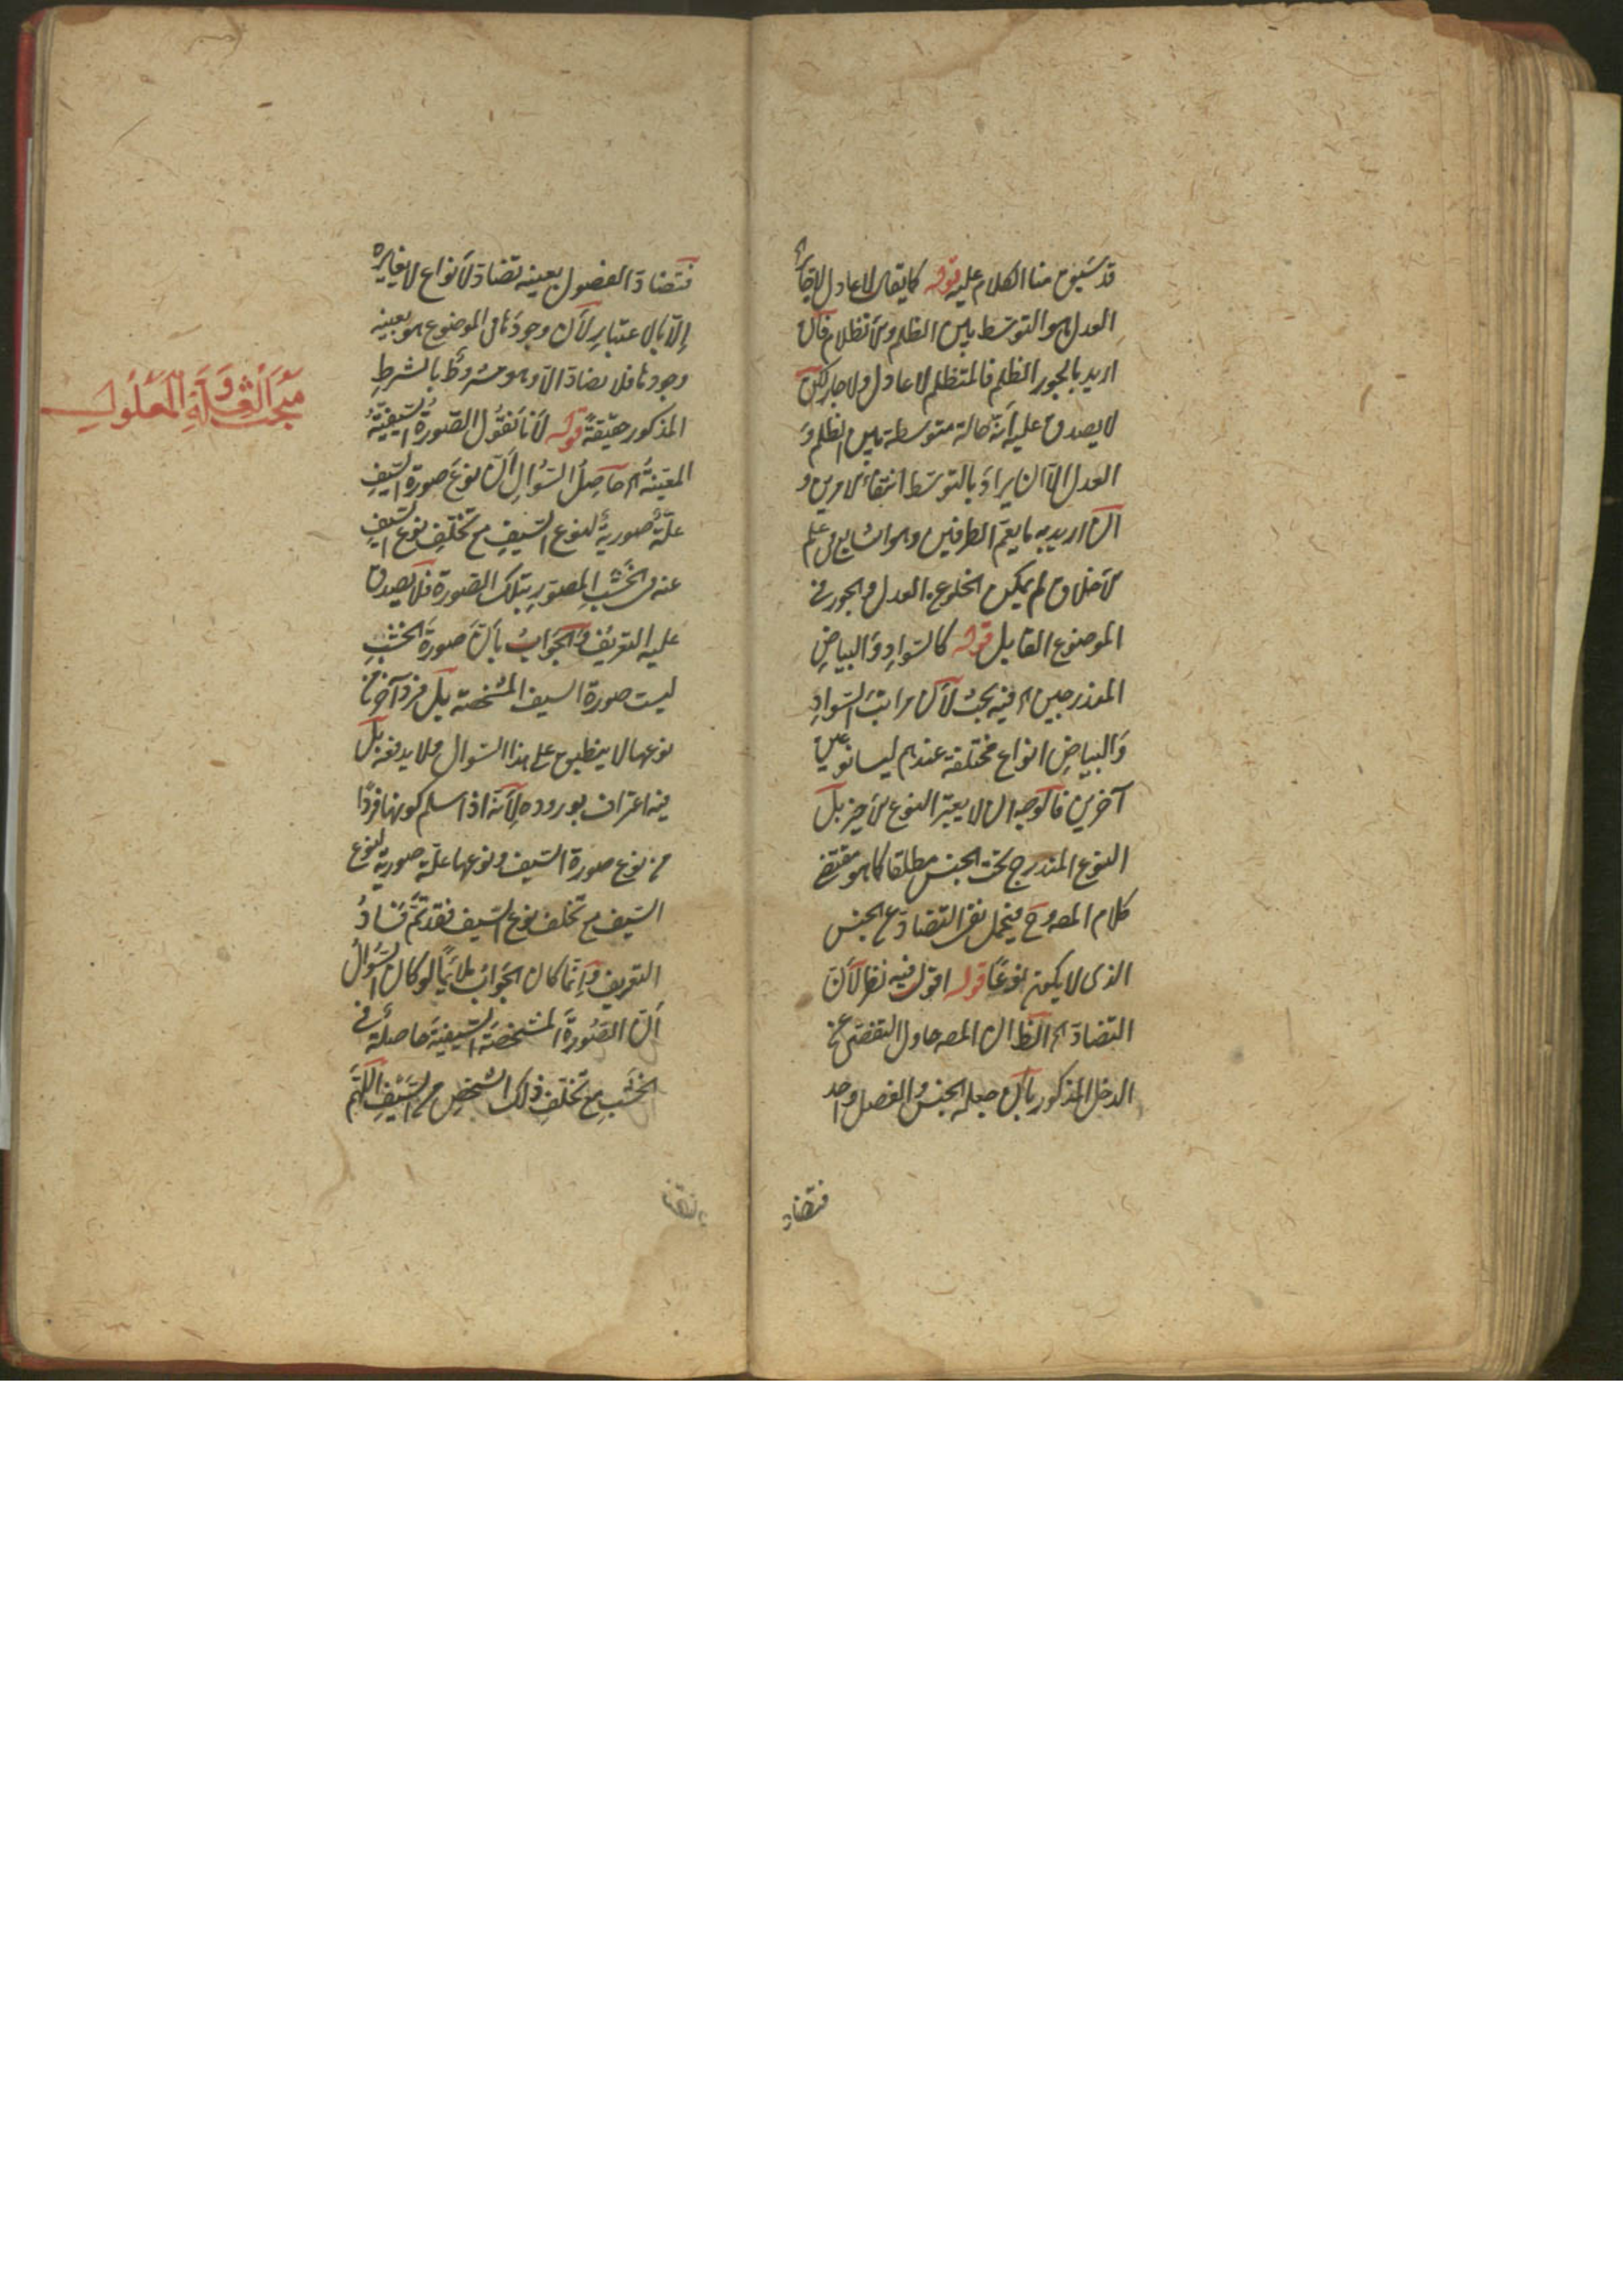 قد سبق منا الكلام عليه قوله كما يقال لا عادل ولا جائر
العدل هو التوسط بين الظلم والانظلام فان
اريد بالجور الظلم فالمتظلم لا عادل ولا جائر لكن
لا يصدق عليه انه حالة متوسطة بين الظلم و
العدل الا ان يراد بالتوسط انتفاء الامرين و
ان اريد به ما يعم الطرفين وهو الشايع في علم
الاخلاق لم يمكن الخلو عن العدل والجور في
الموضوع القابل قوله كالسَّوادِ وَالبياضِ
المندرجين اه فيه بحث لأن مراتبَ السَّوادِ
وَالبياضِ انواع مختلفة عندهم ليسا نوعين
آخرين فالوجه ان لا يعتبر النوع الاخير بل
النوع المندرج تحت الجنس مطلقا كما هو مقتضى
كلام المص وح فيحمل نفي التضاد عن الجنس
الذى لا يكون نوعًا قوله اقول فيه نظر لأن
التضادّ اه الظ ان المص حاول التفصى عن
الدخل المذكور بأن جعل الجنس والفصل واحد
فتضاد
فتضادّ الفصول بعينه تضادّ الأنواع لا يغايره
إلّا بالاعتبار لأن وجودَها فى الموضوع هو بعينه
وجودها فلا يضادّ الا وهو مشروطٌ بالشرطِ
المذكور حقيقةً قوله لأنا نقول الصّورةُ السّيفيّةُ
المعيّنةُ اه حاصِلُ السّؤالِ انّ نوعَ صورة السّيفِ
علّةٌ صوريةٌ لنوع السّيفِ مع تخلّفِ نوع السّيفِ
عنه فى الخَشَبِ المصوّرِ بتلك الصّورة فلا يصدق
عليه التعريفُ وَالجَوابُ بأنّ صورةَ الخشبِ
ليست صورة السيف المشخصة بل فرد آخر من
نوعها لا ينطبق على هذا السّوال ولا يدفعه بل
فيه اعتراف بوروده لأنّه اذا سلم كونها فردًا
من نوع صورة السّيف ونوعها علّة صورية لنوع
السّيف مع تخلف نوع السّيف فقد تمّ فَسَادُ
التعريف وَإنّما كان الجوابُ ملائمًا لو كان السّؤالُ
أنّ الصّورةَ المشخصةَ السّيفيةَ حاصلةٌ فى
الخَشَبِ مع تخلّفِ ذلك الشخصِ من السّيفِ اللّهمّ
مبحث العلّة وَالمعلول